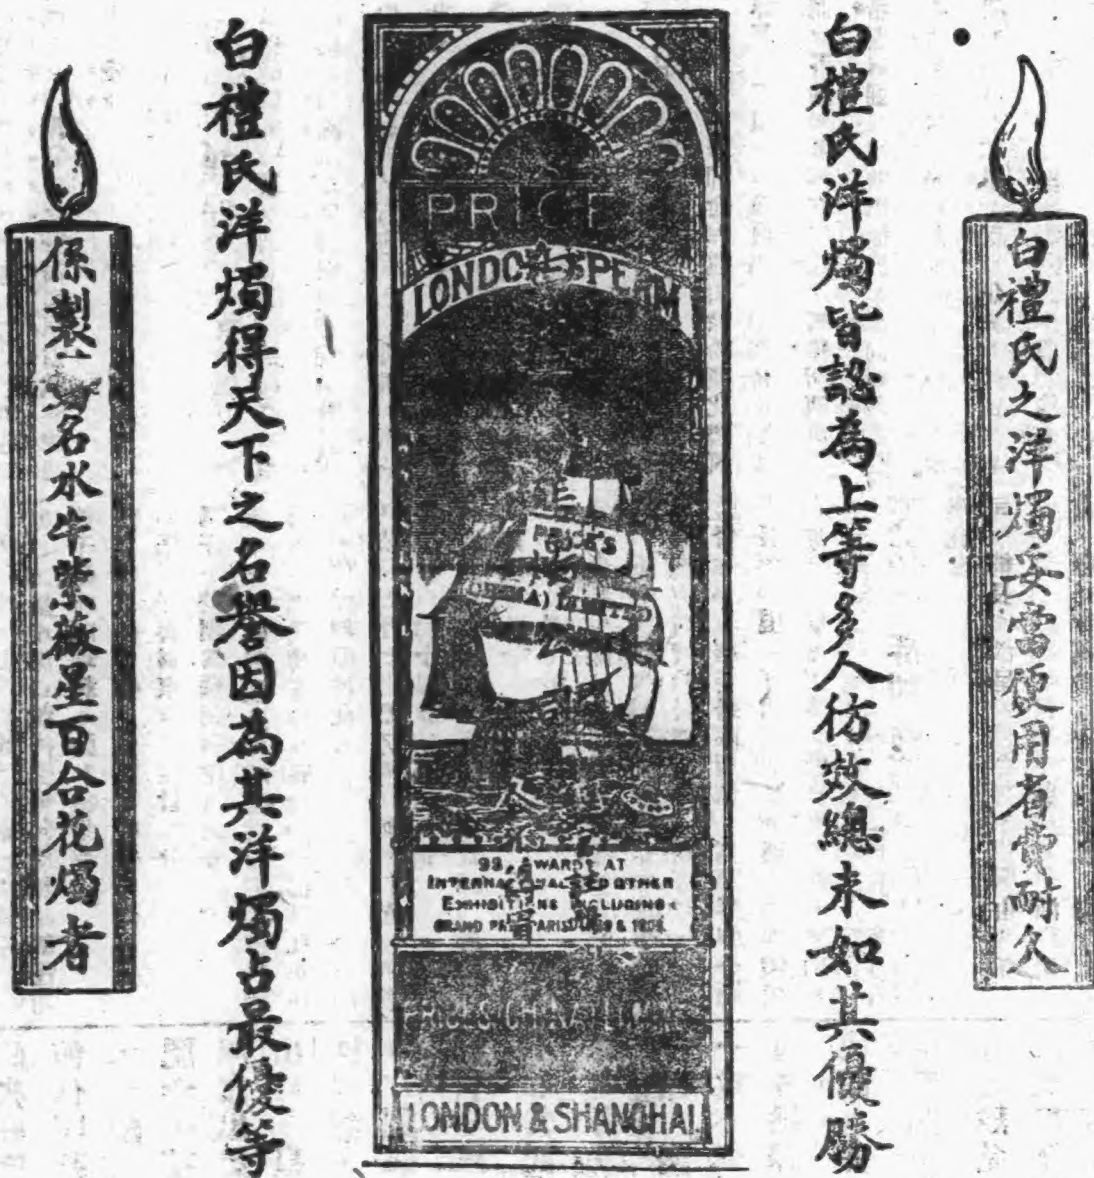 白禮氏之洋燭妥當便用省費耐久
白禮氏洋燭皆認為上等多人彷效總未如其優勝
PRICE'S
LONDON SPERM
PRICE'S
(CHINA) LIMITED
99, AWARDS AT
INTERNATIONAL AND OTHER
EXHIBITIONS INCLUDING
GRAND PRIX PARIS
LONDON & SHANGHAI
白禮氏洋燭得天下之名譽因為其洋燭占最優等
係製名水牛紫薇星百合花燭者